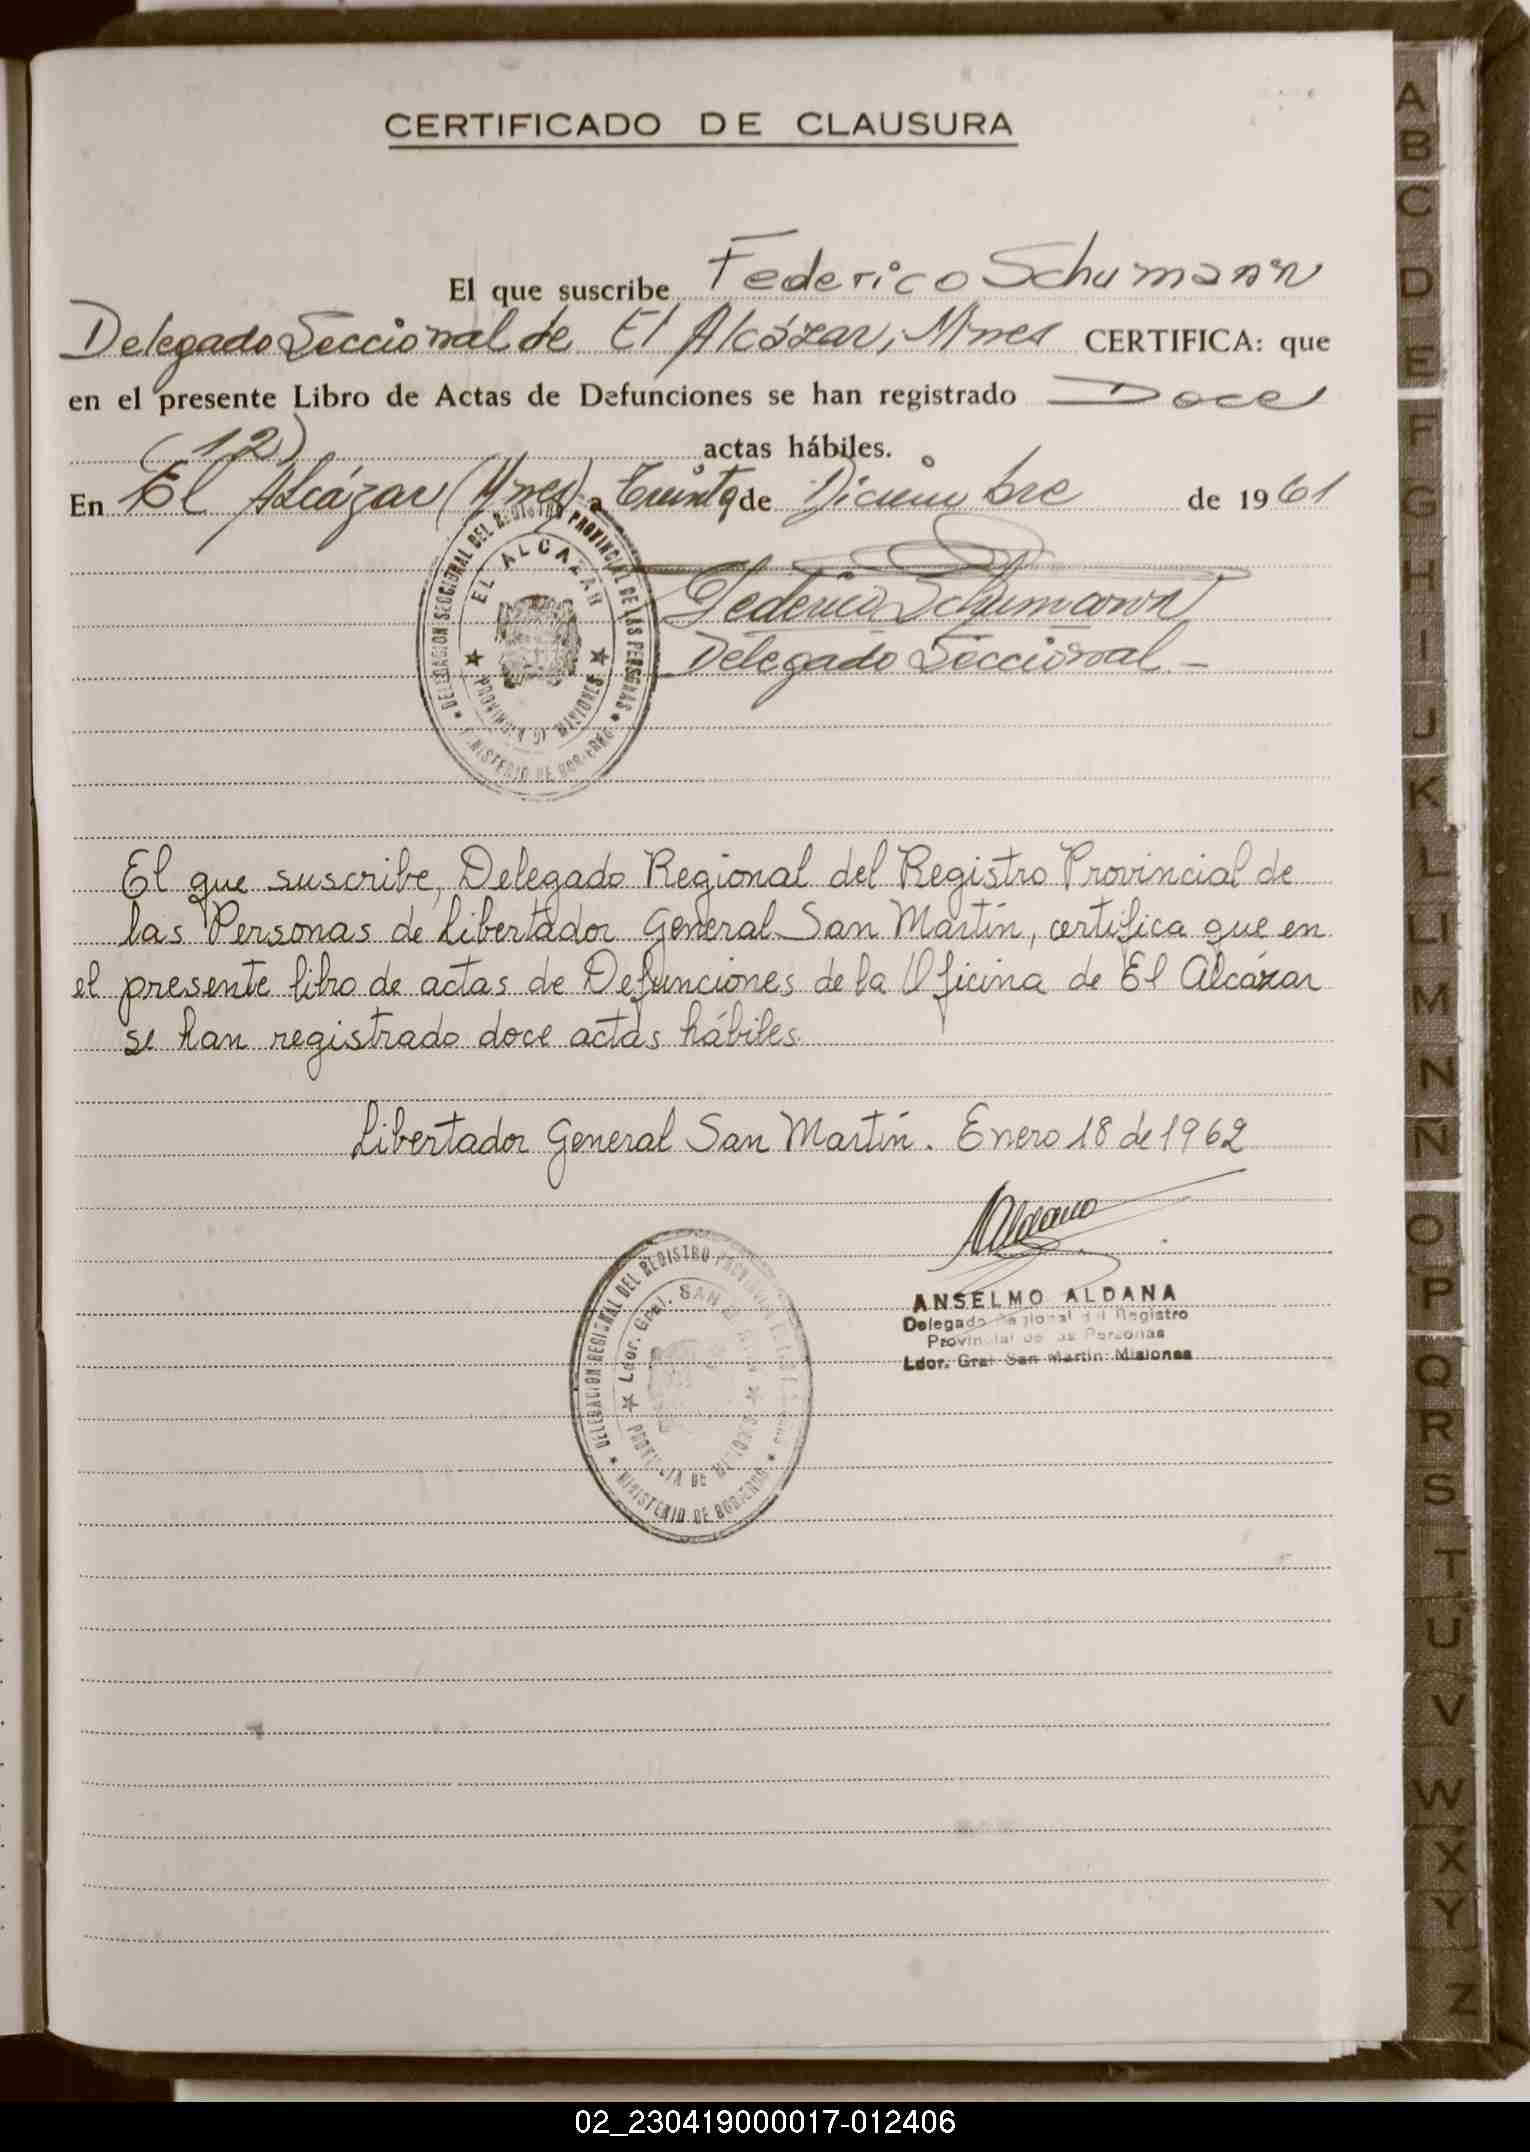 CERTIFICADO DE CLAUSURA
El que suscribe Federico Schumann
Delegado Seccional de El Alcázar, Mnes CERTIFICA: que
en el presente Libro de Actas de Defunciones se han registrado Doce
(12) actas hábiles.
En El Alcázar (Mnes) a Treinta de Diciembre de 1961
DELEGACION SECCIONAL DEL REGISTRO PROVINCIAL DE LAS PERSONAS
EL ALCAZAR
PROVINCIA DE MISIONES
MINISTERIO DE GOBIERNO
Federico Schumann
Delegado Seccional
El que suscribe, Delegado Regional del Registro Provincial de
las Personas de Libertador General San Martín, certifica que en
el presente libro de actas de Defunciones de la Oficina de El Alcázar
se han registrado doce actas hábiles.
Libertador General San Martín. Enero 18 de 1962
AAldana
ANSELMO ALDANA
Delegado Regional del Registro
Provincial de las Personas
Ldor. Gral San Martin: Misiones
DELEGACION REGIONAL DEL REGISTRO PROVINCIAL
Ldor. Gral. SAN MARTIN
PROVINCIA DE MISIONES
MINISTERIO DE GOBIERNO
A
B
C
D
E
F
G
H
I
J
K
L
LI
M
N
Ñ
O
P
Q
R
S
T
U
V
W
X
Y
Z
02_230419000017-012406